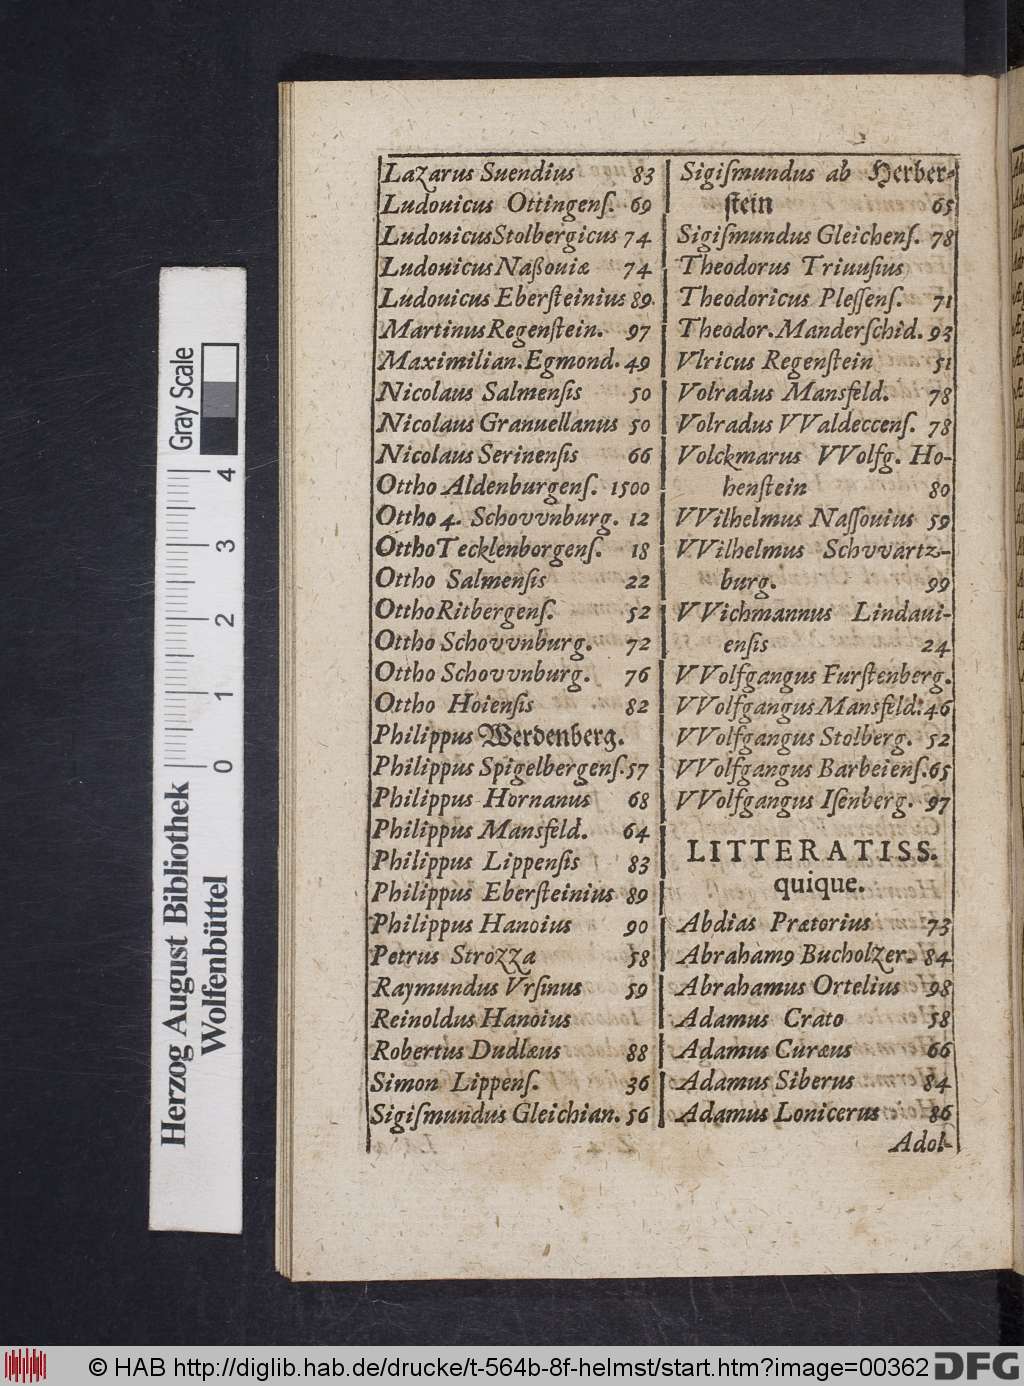 Lazarus Suendius 83
Ludouicus Ottingenſ. 69
Ludouicus Stolbergicus 74
Ludouicus Naßouiæ 74
Ludouicus Eberſteinius 89.
Martinus Regenſtein. 97
Maximilian. Egmond. 49
Nicolaus Salmenſis 50
Nicolaus Granuellanus 50
Nicolaus Serinenſis 66
Ottho Aldenburgenſ. 1500
Ottho 4. Schovvnburg. 12
Ottho Tecklenborgenſ. 18
Ottho Salmenſis 22
Ottho Ritbergenſ. 52
Ottho Schovvnburg. 72
Ottho Schovvnburg. 76
Ottho Hoienſis 82
Philippus Werdenberg.
Philippus Spigelbergenſ. 57
Philippus Hornanus 68
Philippus Mansfeld. 64
Philippus Lippenſis 83
Philippus Eberſteinius 89
Philippus Hanoius 90
Petrus Strozza 58
Raymundus Vrſinus 59
Reinoldus Hanoius
Robertus Dudlæus 88
Simon Lippenſ. 36
Sigiſmundus Gleichian. 56
Sigiſmundus ab Herber-
ſtein 65
Sigiſmundus Gleichenſ. 78
Theodorus Triuuſius
Theodoricus Pleſſenſ. 71
Theodor. Manderſchid. 93
Vlricus Regenſtein 51
Volradus Mansfeld. 78
Volradus VValdeccenſ. 78
Volckmarus VVolfg. Ho-
henſtein 80
VVilhelmus Naſſouius 59
VVilhelmus Schvvartz-
burg. 99
VVichmannus Lindaui-
enſis 24
VVolfgangus Furſtenberg.
VVolfgangus Mansfeld. 46
VVolfgangus Stolberg. 52
VVolfgangus Barbeienſ. 65
VVolfgangus Iſenberg. 97
LITTERATISS.
quique.
Abdias Prætorius 73
Abrahamꝰ Bucholzer. 84
Abrahamus Ortelius 98
Adamus Crato 58
Adamus Curæus 66
Adamus Siberus 84
Adamus Lonicerus 86
Adol-
Herzog August Bibliothek
Wolfenbüttel
0 1 2 3 4
Gray Scale
© HAB http://diglib.hab.de/drucke/t-564b-8f-helmst/start.htm?image=00362
DFG